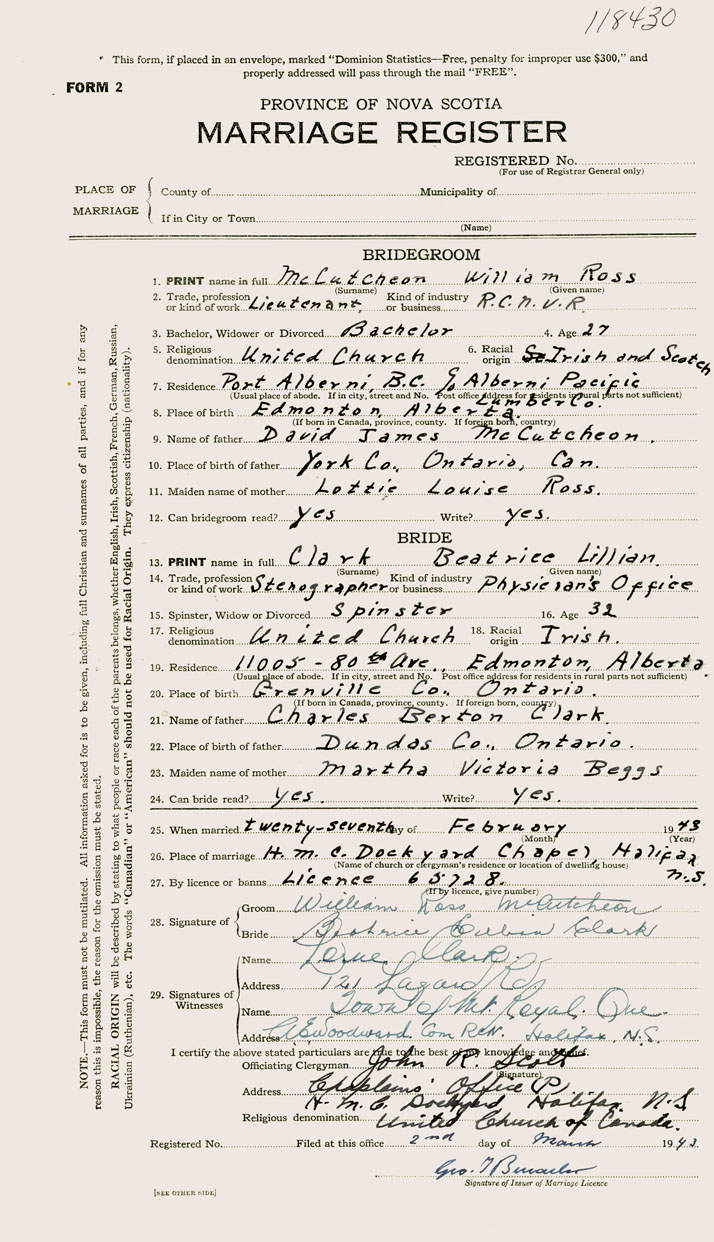 118430
* This form, if placed in an envelope, marked "Dominion Statistics—Free, penalty for improper use $300," and
properly addressed will pass through the mail "FREE".
FORM 2
PROVINCE OF NOVA SCOTIA
MARRIAGE REGISTER
REGISTERED No.
(For use of Registrar General only)
PLACE OF MARRIAGE
County of Municipality of
If in City or Town
(Name)
BRIDEGROOM
1. PRINT name in full McCutcheon William Ross
(Surname) (Given name)
2. Trade, profession or kind of work Lieutenant, Kind of industry or business R.C.N.V.R.
3. Bachelor, Widower or Divorced Bachelor 4. Age 27
5. Religious denomination United Church 6. Racial origin Irish and Scotch
7. Residence Port Alberni, B.C. c/o Alberni Pacific
(Usual place of abode. If in city, street and No. Post office address for residents in rural parts not sufficient)
Lumber Co.
8. Place of birth Edmonton, Alberta.
(If born in Canada, province, county. If foreign born, country)
9. Name of father David James McCutcheon.
10. Place of birth of father York Co., Ontario, Can.
11. Maiden name of mother Lottie Louise Ross.
12. Can bridegroom read? Yes Write? Yes.
BRIDE
13. PRINT name in full Clark Beatrice Lillian.
(Surname) (Given name)
14. Trade, profession or kind of work Stenographer Kind of industry or business Physician's Office
15. Spinster, Widow or Divorced Spinster 16. Age 32
17. Religious denomination United Church 18. Racial origin Irish.
19. Residence 11005 - 80th Ave., Edmonton, Alberta.
(Usual place of abode. If in city, street and No. Post office address for residents in rural parts not sufficient)
20. Place of birth Grenville Co., Ontario.
(If born in Canada, province, county. If foreign born, country)
21. Name of father Charles Berton Clark.
22. Place of birth of father Dundas Co., Ontario.
23. Maiden name of mother Martha Victoria Beggs
24. Can bride read? Yes. Write? Yes.
25. When married twenty-seventh day of February 1943
(Month) (Year)
26. Place of marriage H.M.C. Dockyard Chapel, Halifax
(Name of church or clergyman's residence or location of dwelling house)
N.S.
27. By licence or banns Licence 65728.
(If by licence, give number)
28. Signature of
Groom William Ross McCutcheon
Bride Beatrice Lillian Clark
29. Signatures of Witnesses
Name Clark.
Address 121
Name Town of Mt. Royal. Que.
Address Woodward Halifax, N.S.
I certify the above stated particulars are true to the best of my knowledge and belief.
Officiating Clergyman John R. Scott
(Signature)
Address Chaplains' Office (P)
H.M.C. Dockyard Halifax N.S
Religious denomination United Church of Canada.
Registered No. Filed at this office 2nd day of March 1943.
Geo.
Signature of Issuer of Marriage Licence
[SEE OTHER SIDE]
NOTE.—This form must not be mutilated. All information asked for is to be given, including full Christian and surnames of all parties, and if for any
reason this is impossible, the reason for the omission must be stated.
RACIAL ORIGIN will be described by stating to what people or race each of the parents belongs, whether English, Irish, Scottish, French, German, Russian,
Ukrainian (Ruthenian), etc. The words "Canadian" or "American" should not be used for Racial Origin. They express citizenship (nationality).